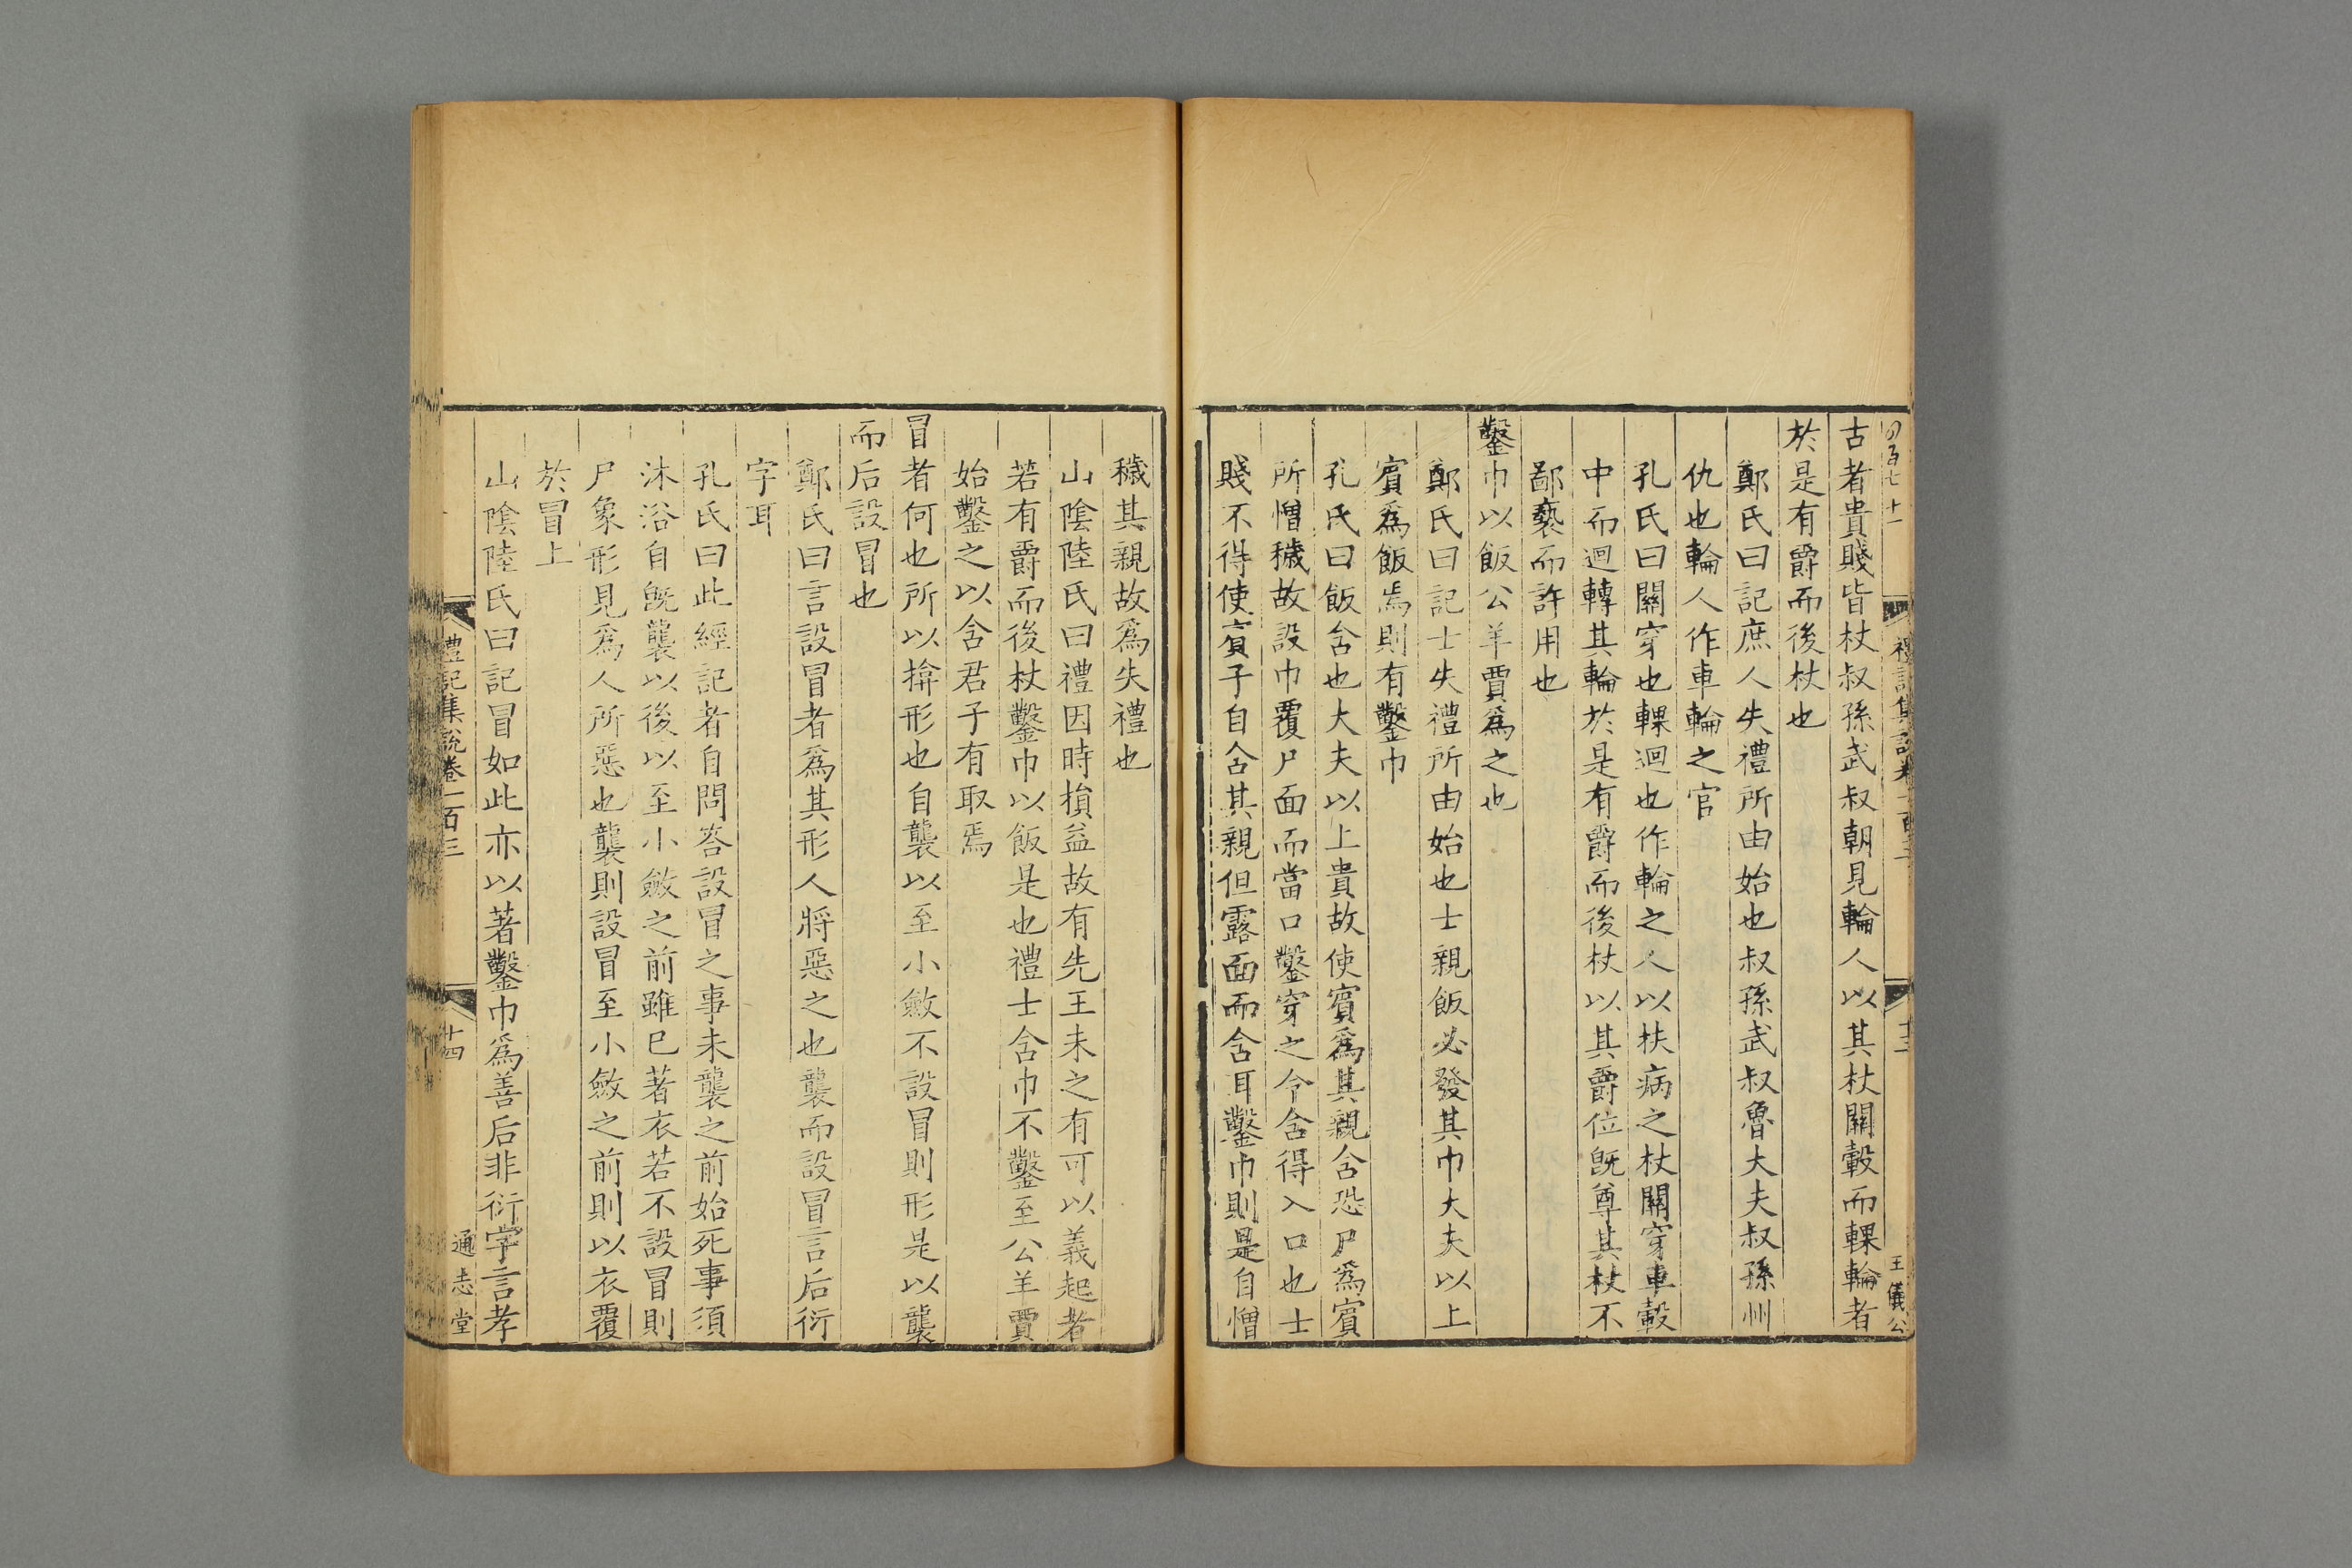 古者貴賤皆杖叔孫武叔朝見輪人以其杖關轂而輠輪者
於是有爵而後杖也
鄭氏曰記庶人失禮所由始也叔孫武叔魯大夫叔孫州
仇也輪人作車輪之官
孔氏曰關穿也輠迴也作輪之人以扶病之杖關穿車轂
中而迴轉其輪於是有爵而後杖以其爵位旣尊其杖不
鄙褻而許用也
鑿巾以飯公羊賈爲之也
鄭氏曰記士失禮所由始也士親飯必發其巾大夫以上
賓爲飯焉則有鑿巾
孔氏曰飯含也大夫以上貴故使賓爲其親含恐尸爲賓
所憎穢故設巾覆尸面而當口鑿穿之令含得入口也士
賤不得使賓子自含其親但露面而含耳鑿巾則是自憎
穢其親故爲失禮也
山陰陸氏曰禮因時損益故有先王未之有可以義起者
若有爵而後杖鑿巾以飯是也禮士含巾不鑿至公羊賈
始鑿之以含君子有取焉
冒者何也所以揜形也自襲以至小斂不設冒則形是以襲
而后設冒也
鄭氏曰言設冒者爲其形人將惡之也襲而設冒言后衍
字耳
孔氏曰此經記者自問答設冒之事未襲之前始死事須
沐浴自旣襲以後以至小斂之前雖巳著衣若不設冒則
尸象形見爲人所惡也襲則設冒至小斂之前則以衣覆
於冒上
山陰陸氏曰記冒如此亦以著鑿巾爲善后非衍字言孝
禮記集說卷一百三
十四
通志堂